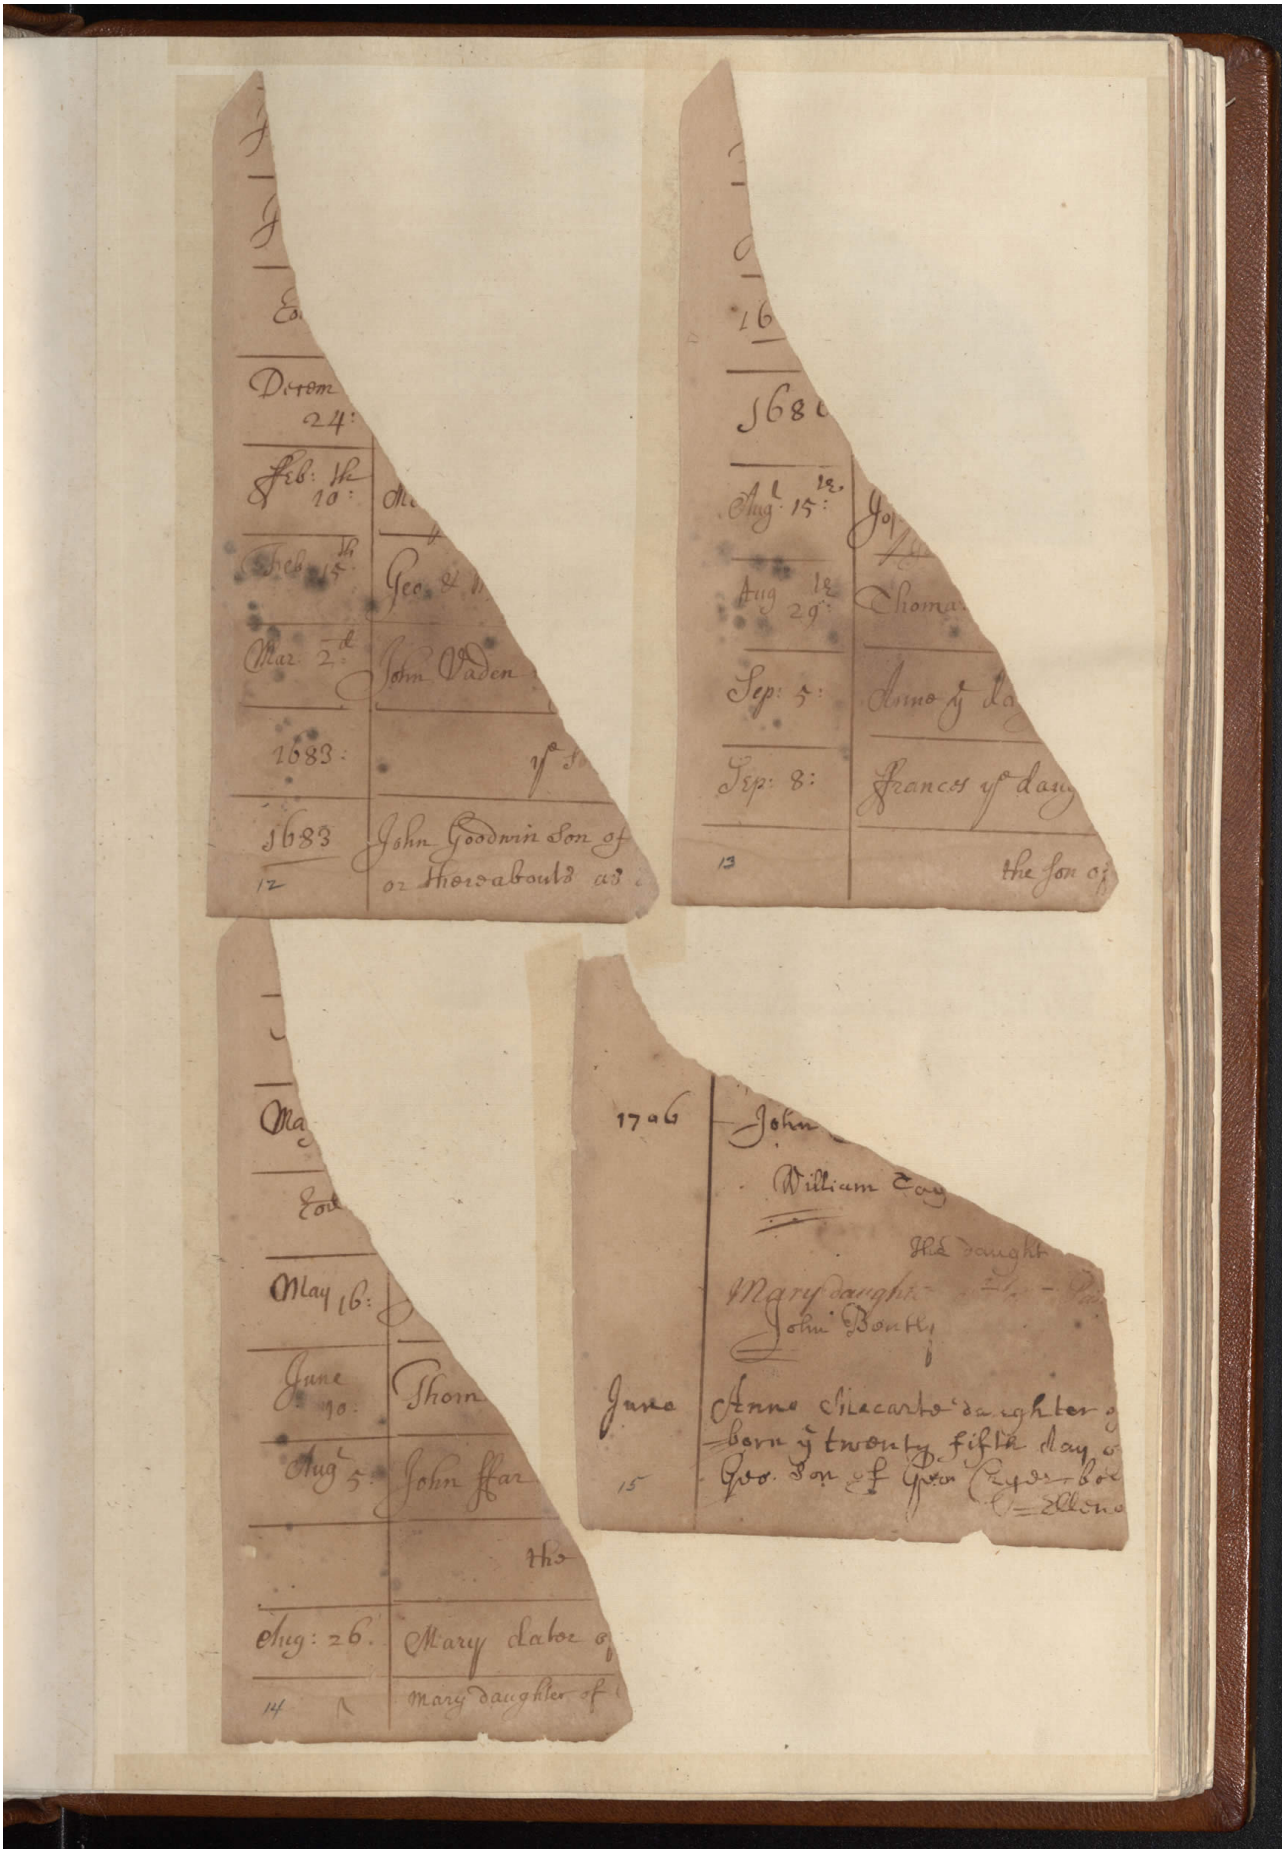 Decem
24:
ffeb: th
10:
Feb 15th
Geo &
Mar: 2d
John Vaden
1683:
ye
1683 John Goodwin son of
or thereabouts as
12
16
168
Augt 15: th
Aug 29: th
Thoma
Sep: 5:
Anne ye da
Sep: 8:
ffrances ye daug
the son of
13
Ma
May 16:
June
10:
Thom
Augt 5:
John ffar
the
Aug: 26.
Mary dater of
mary daughter of
14
1706
John
William Tay
the daught
Mary daught
John Bently
June
Anne Macarte daughter o
born ye twenty fifth day o
Geo. Son of Geo bor
Elleno
15